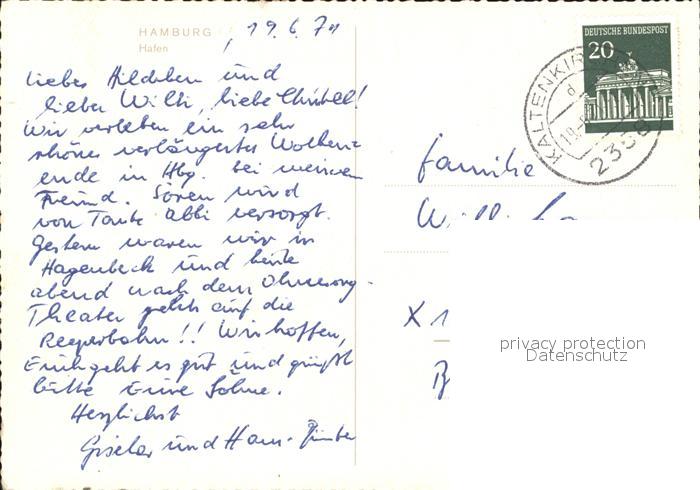 HAMBURG
Hafen
, 19.6.71
Liebes Hildchen und
lieber Willi, liebe Christel!
Wir verleben ein sehr
schönes verlängertes Wochen-
ende in Hbg. bei meinem
Freund. Sören wird
von Tante Abbi versorgt.
Gestern waren wir in
Hagenbeck und heute
abend nach dem Ohnsorg-
Theater gehts auf die
Reeperbahn!! Wir hoffen,
Euch geht es gut und grüßt
bitte Eure Söhne.
Herzlichst
Gisela und Hans-Günter
DEUTSCHE BUNDESPOST
20
KALTENKIR
d
2358
Familie
X 1
privacy protection
Datenschutz